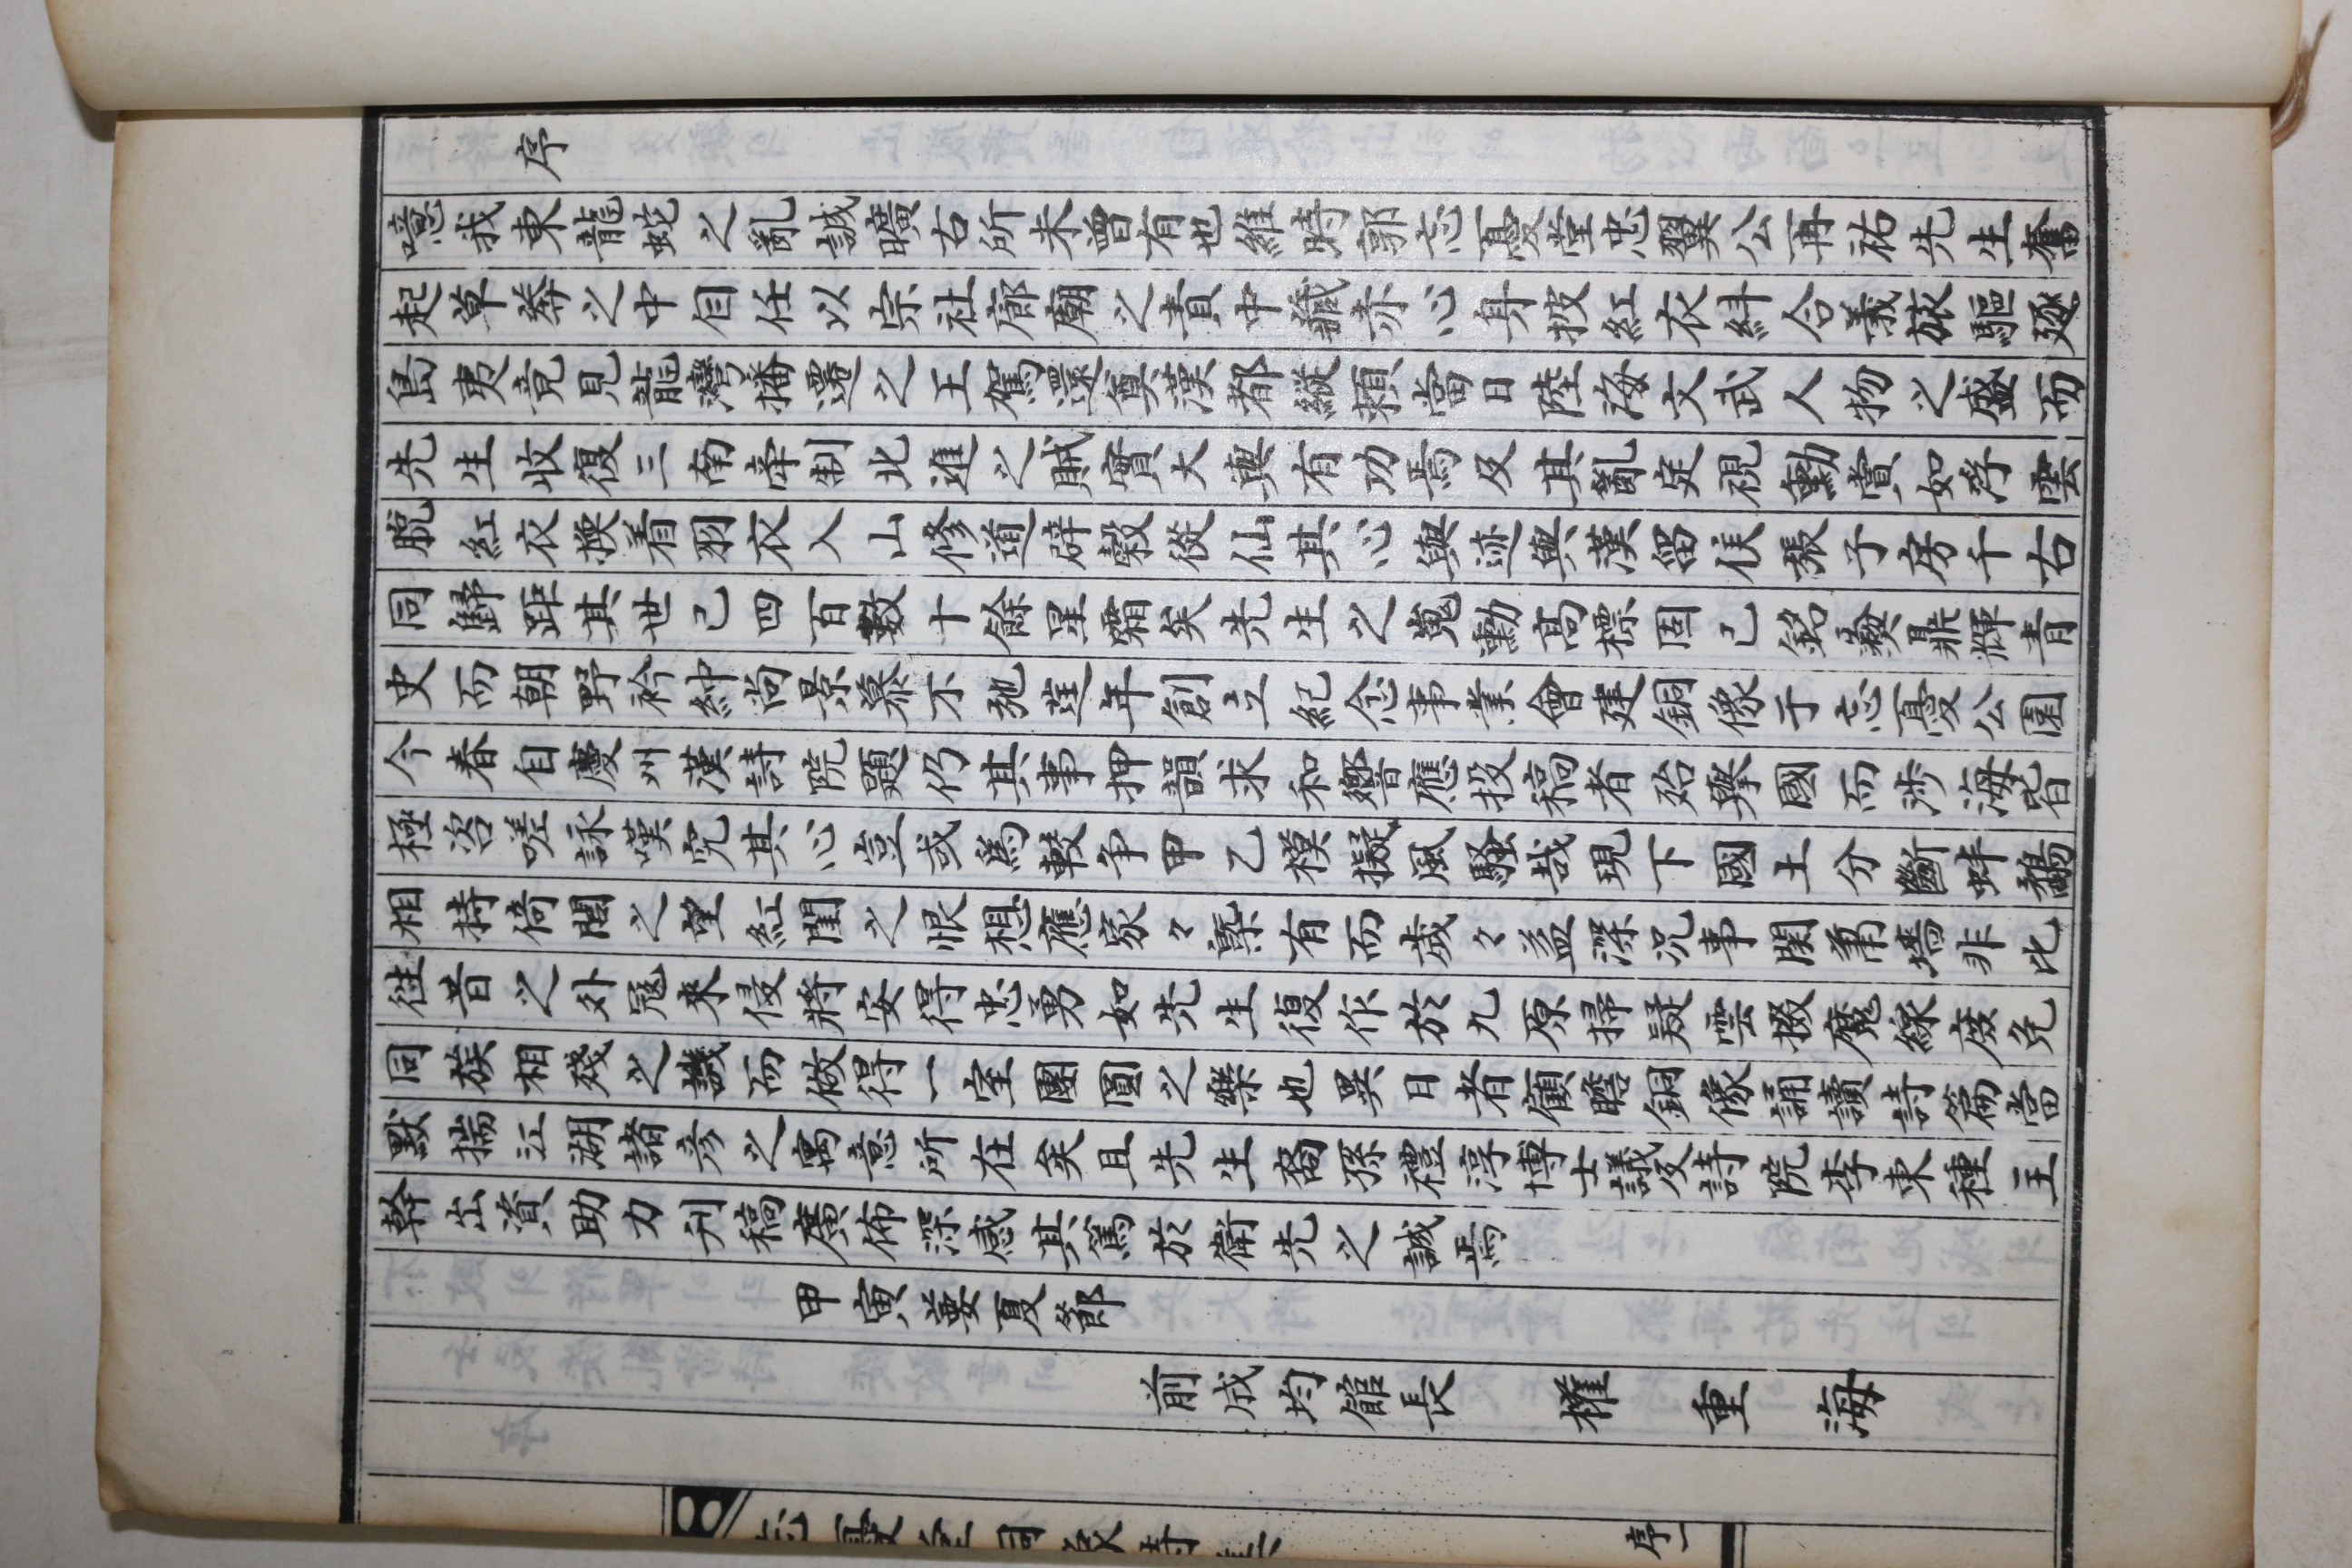 序
噫我東龍蛇之亂誠曠古所未曾有也維時郭忘憂堂忠翼公再祐先生奮
起草莽之中自任以宗社廊廟之責中藏赤心身披紅衣糾合義旅驅逐
島夷竟見龍灣播遷之王駕還奠漢都縱賴當日陸海文武人物之盛而
先生收復三南牽制北進之賊實大與有功焉及其亂定視勳賞如浮雲
脫紅衣換着羽衣入山修道辟穀從仙其心與迹與漢留侯張子房千古
同歸距其世已四百數十餘星霜矣先生之嵬勳高標固已銘彝鼎輝青
史而朝野衿紳尚景慕不弛莛年創立紀念事業會建銅像于忘憂公園
今春自慶州漢詩院題仍其事押韻求和響應投稿者殆擧國而涉海皆
極咨嗟詠嘆究其心豈或爲較爭甲乙模擬風騷哉現下國土分斷蚌鷸
相持倚閭之望紅閨之恨想應家々槩有而歲々益深况事関蕭墻非比
徃昔之外冦來侵將安得忠勇如先生復作於九原掃疑雲掇魔線庶免
同族相殘之譏而做得一室團圓之樂也異日者顧瞻銅像誦讀詩篇當
默揣江湖諸彦之寓意所在矣且先生裔孫禮淳博士議及詩院李東種主
幹出資助力刊稿廣佈深感其篤於衛先之誠焉
甲寅蔞夏節
前成均館長 權重海
忘憂堂銅像詩集 序一